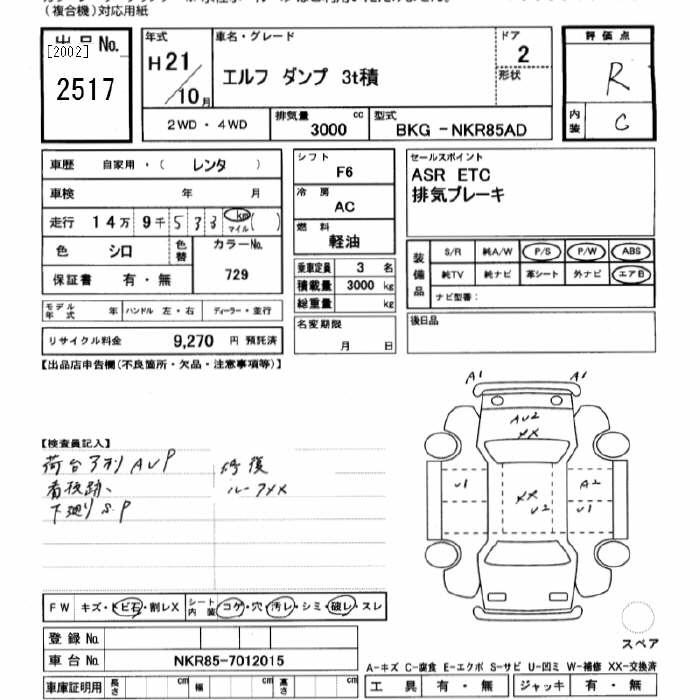 (複合機)対応用紙
出品 No.
[2002]
2517
年式
H21/10月
車名・グレード
エルフ ダンプ 3t積
ドア
2
形状
評価点
R
内装
C
2WD・4WD
排気量 cc
3000
型式
BKG-NKR85AD
車歴 自家用・( レンタ )
車検 年 月
走行 14万 9千 533 km マイル ( )
色 シロ 色替 カラーNo.
729
保証書 有・無
モデル年式 年 ハンドル 左・右 ディーラー・並行
リサイクル料金 9,270 円 預託済
シフト
F6
冷房
AC
燃料
軽油
乗車定員 3 名
積載量 3000 kg
総重量 kg
名変期限
月 日
セールスポイント
ASR ETC
排気ブレーキ
装備品 S/R 純A/W P/S P/W ABS
純TV 純ナビ 革シート 外ナビ エアB
ナビ型番:
後日品
【出品店申告欄(不良箇所・欠品・注意事項等)】
【検査員記入】
荷台 AUP
下廻りS.P
修復
ルーフXX
A1 A1
AU2
XX
U1
XX
U2
A2
U1
スペア
FW キズ・トビ石・割レX シート内装 コゲ・穴・汚レ・シミ・破レ・スレ
登録 No.
車台 No. NKR85-7012015
車庫証明用 長さ cm 幅 cm 高さ cm
A-キズ C-腐食 E-エクボ S-サビ U-凹ミ W-補修 XX-交換済
工具 有・無 ジャッキ 有・無